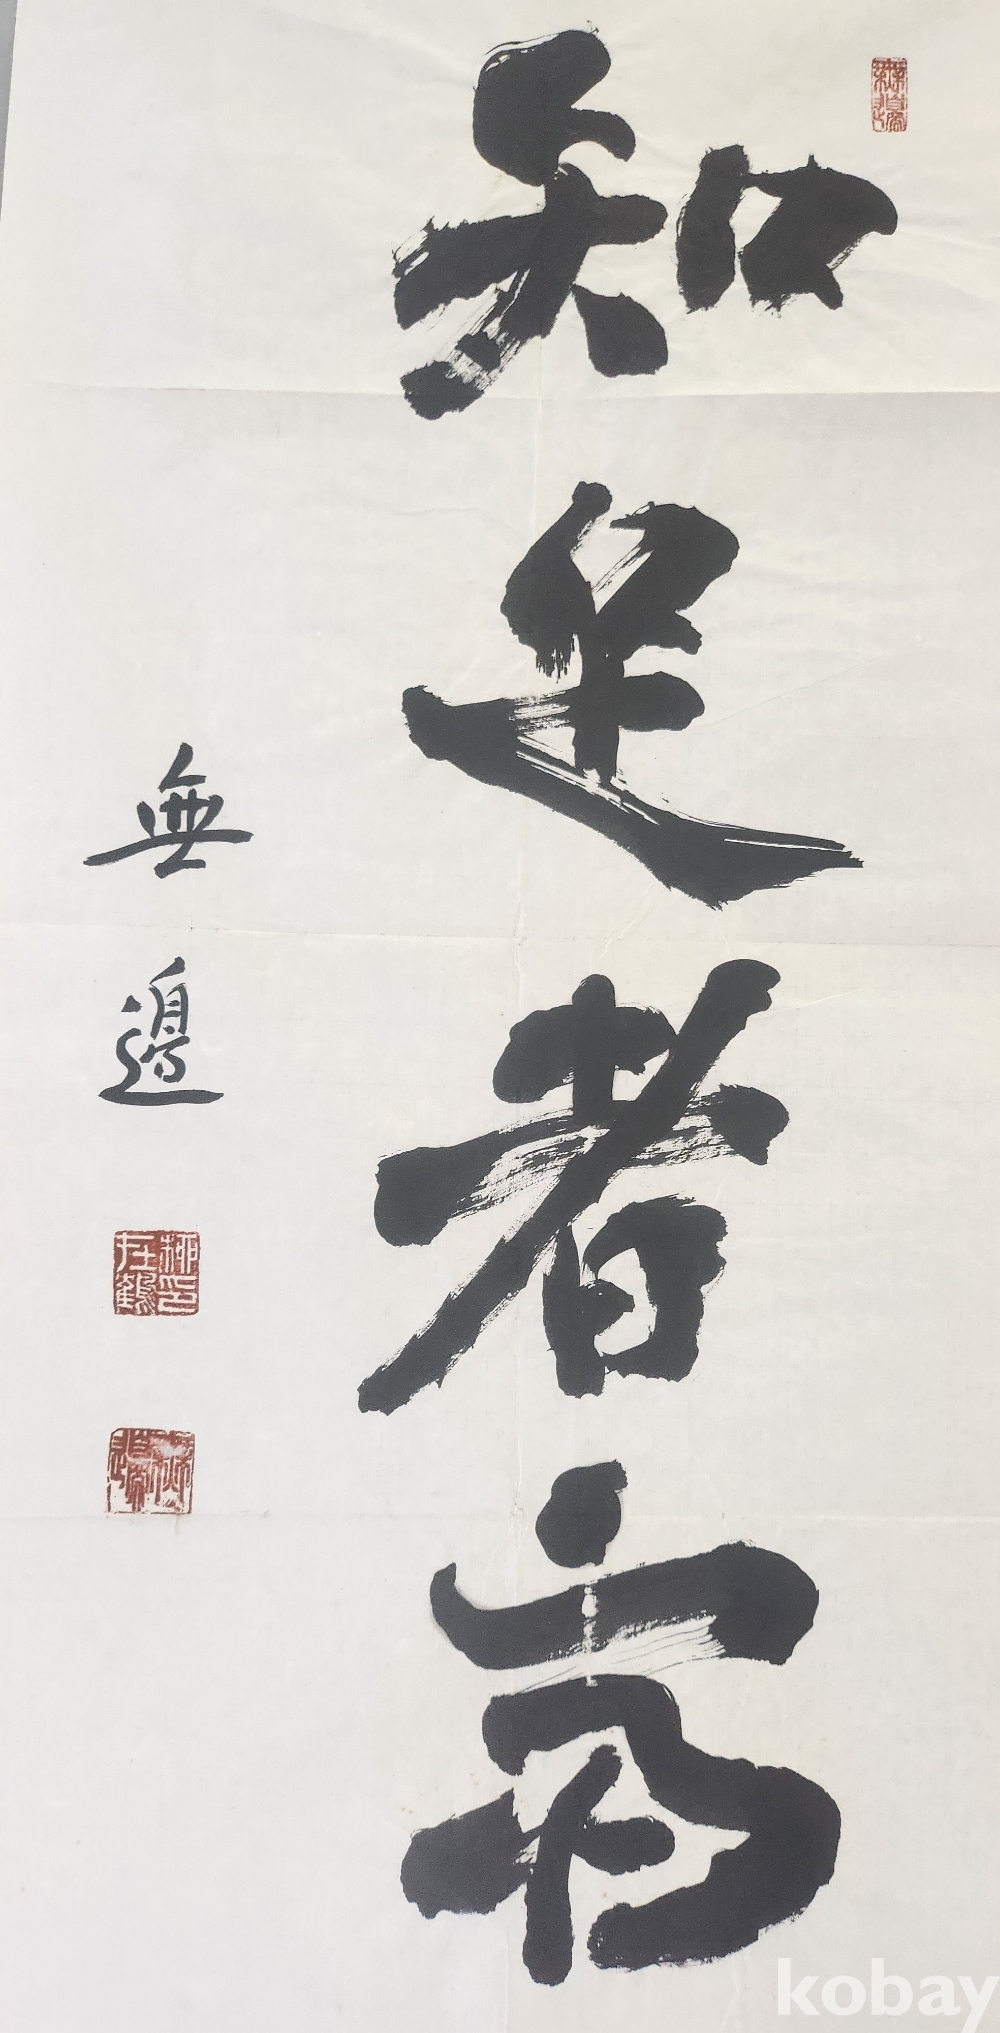 知足者富
無邊
kobay